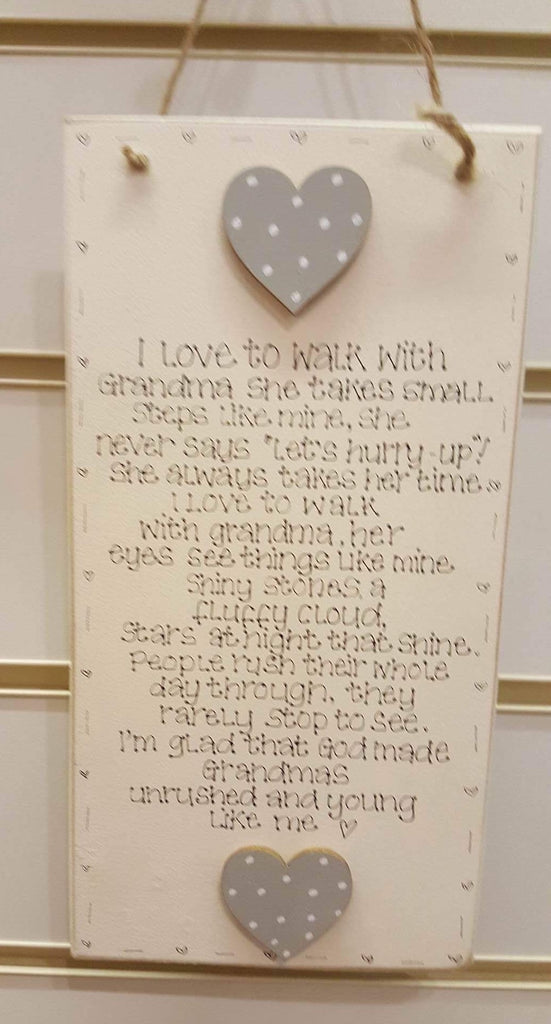 I Love to walk with
Grandma she takes small
steps like mine, she
never says "Let's hurry-up"!
She always takes her time.
I Love to walk
with grandma, her
eyes see things like mine
Shiny stones, a
fluffy cloud,
Stars at night that shine.
People rush their whole
day through, they
rarely stop to see.
I'm glad that God made
Grandmas
unrushed and young
Like me